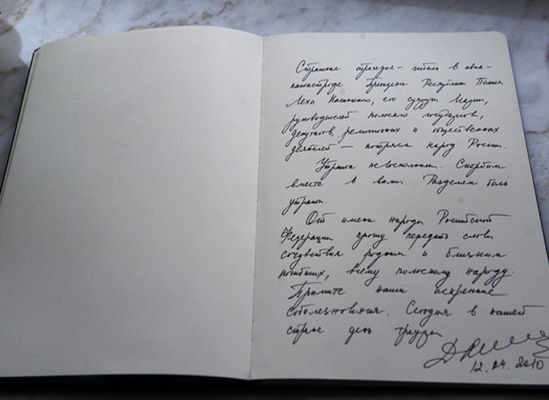 Страшная трагедия - гибель в авиа-
катастрофе Президента Республики Польша
Леха Качиньского, его супруги Марии,
руководителей польского государства,
депутатов, религиозных и общественных
деятелей — потрясла народ России.
Утрата невосполнима. Скорбим
вместе с вами. Разделяем боль
утраты.
От имени народа Российской
Федерации прошу передать слова
сочувствия родным и близким
погибших, всему польскому народу.
Примите наши искренние
соболезнования. Сегодня в нашей
стране день траура
12.04.2010